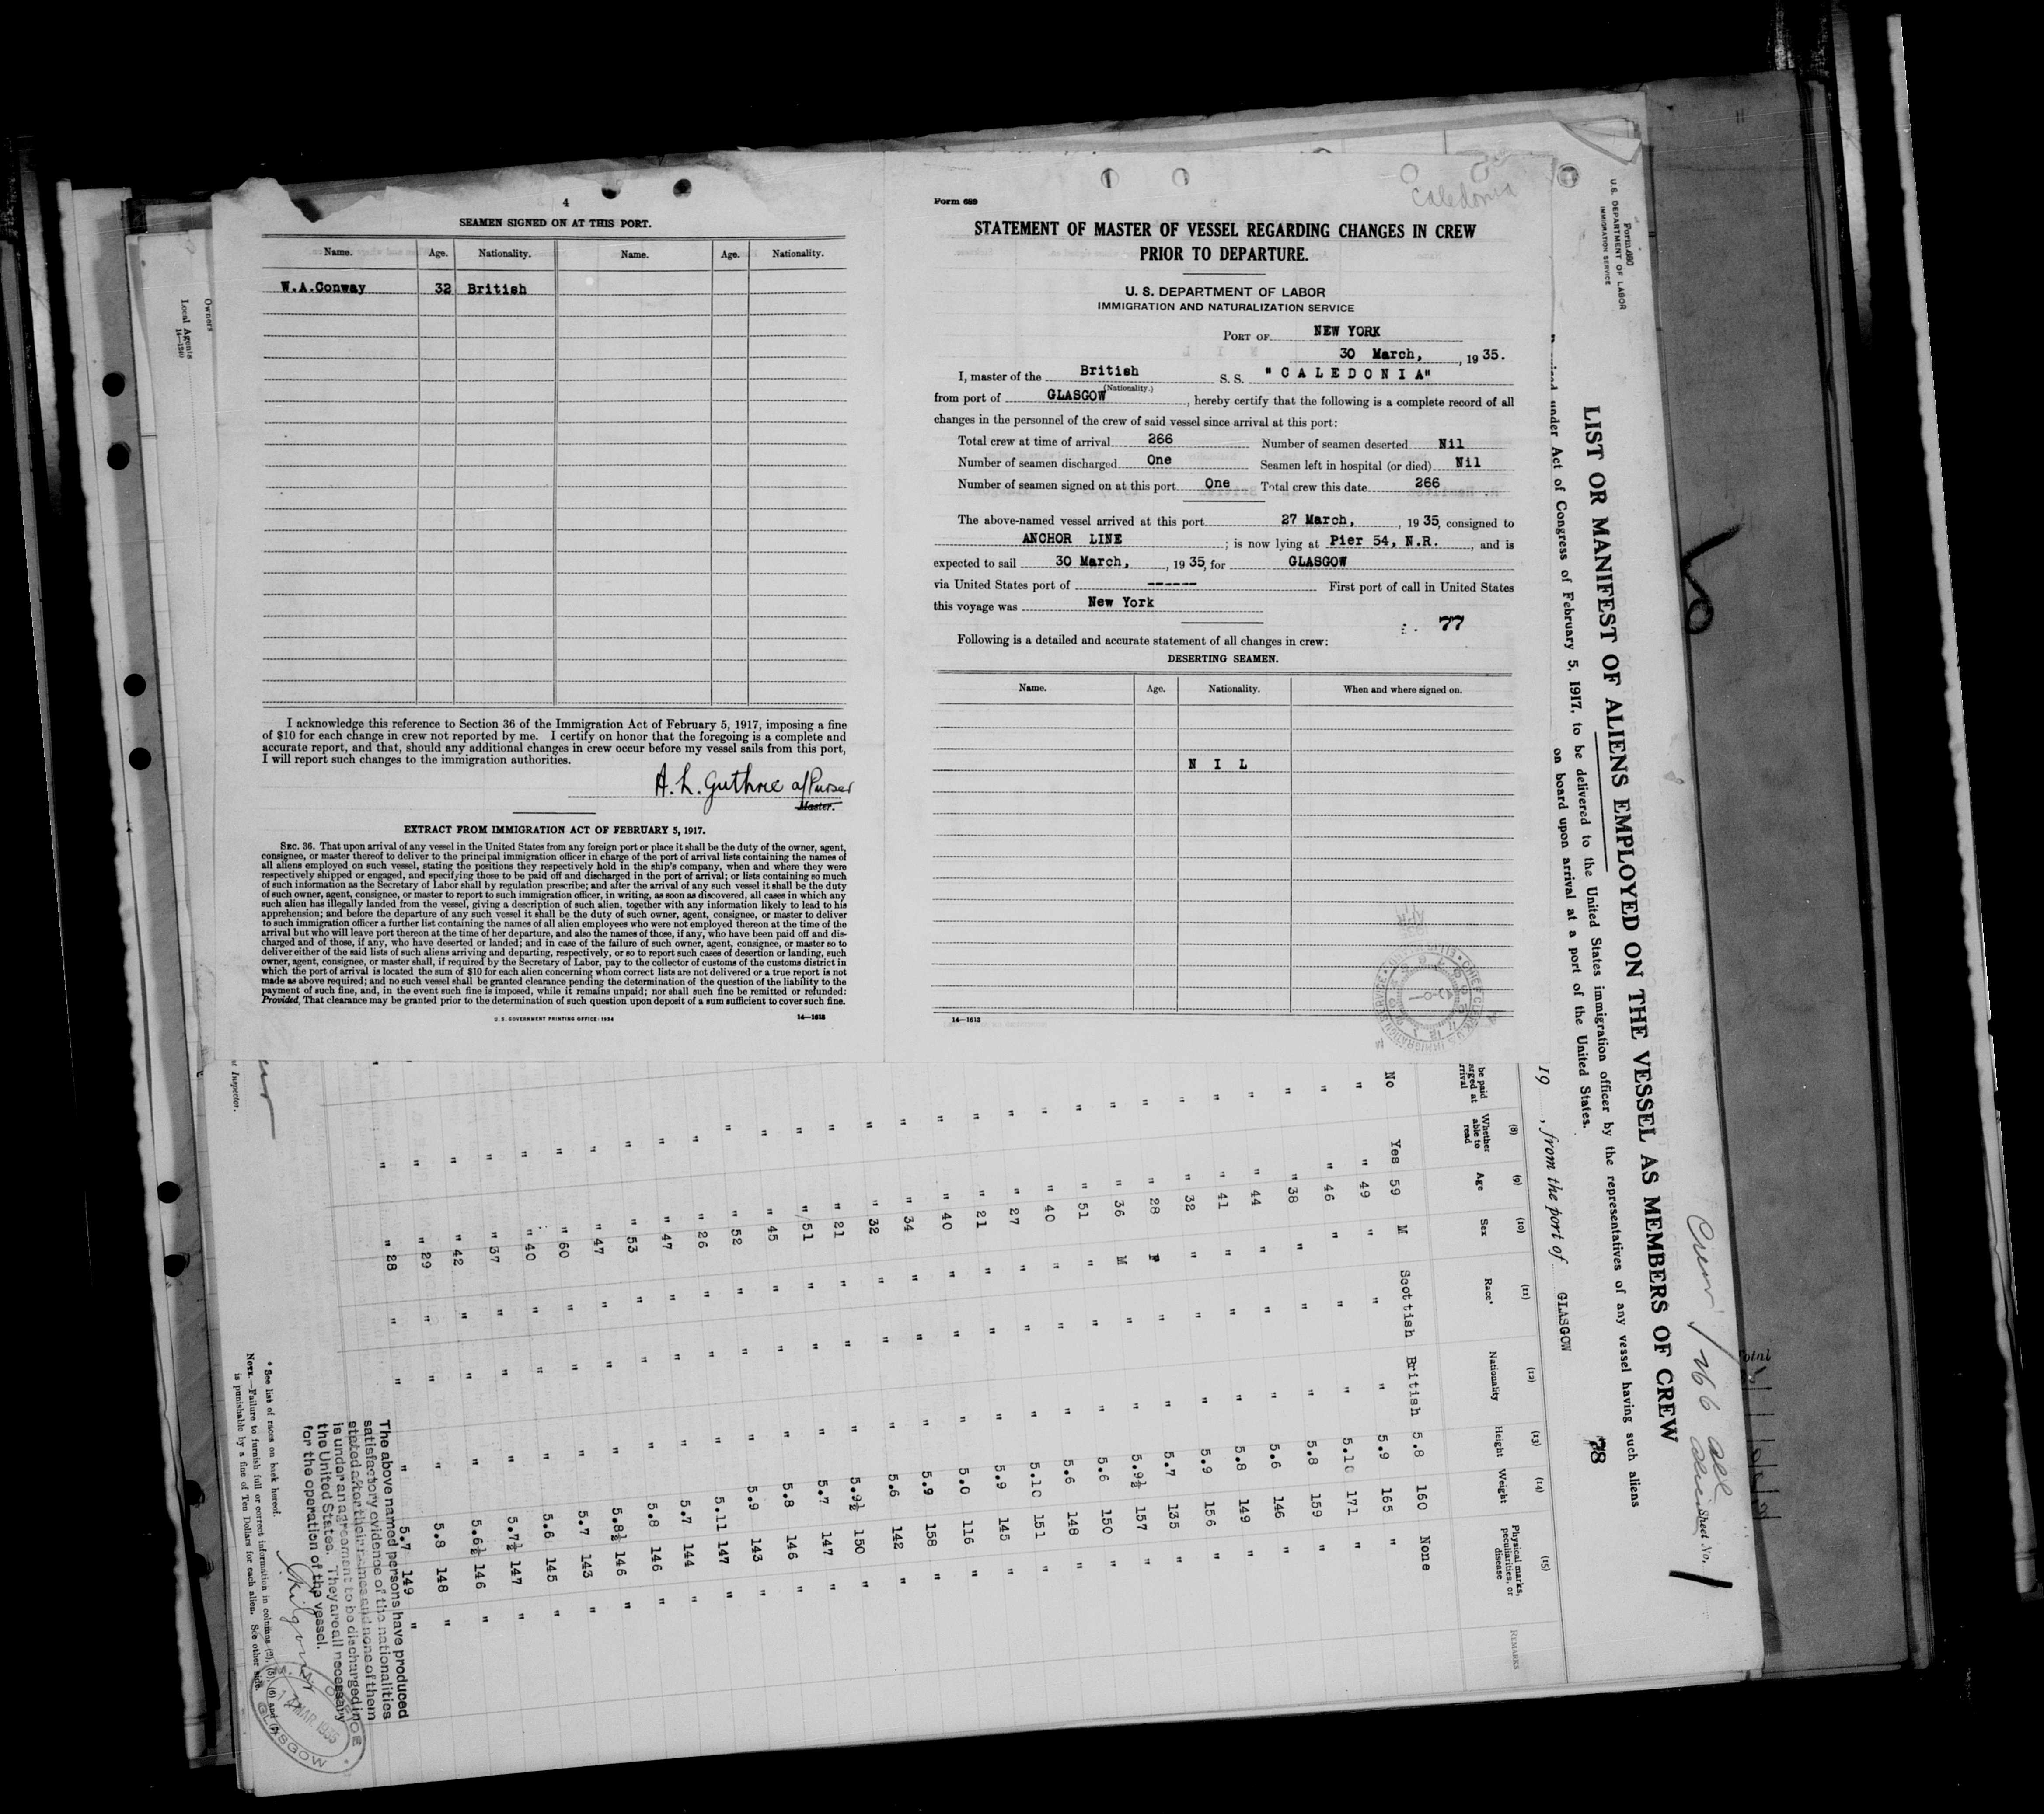 4
SEAMEN SIGNED ON AT THIS PORT.
Name. Age. Nationality. Name. Age. Nationality.
W.A.Conway 32 British
I acknowledge this reference to Section 36 of the Immigration Act of February 5, 1917, imposing a fine
of $10 for each change in crew not reported by me. I certify on honor that the foregoing is a complete and
accurate report, and that, should any additional changes in crew occur before my vessel sails from this port,
I will report such changes to the immigration authorities.
A. L. Guthrie a/Purser
Master.
EXTRACT FROM IMMIGRATION ACT OF FEBRUARY 5, 1917.
SEC. 36. That upon arrival of any vessel in the United States from any foreign port or place it shall be the duty of the owner, agent,
consignee, or master thereof to deliver to the principal immigration officer in charge of the port of arrival lists containing the names of
all aliens employed on such vessel, stating the positions they respectively hold in the ship's company, when and where they were
respectively shipped or engaged, and specifying those to be paid off and discharged in the port of arrival; or lists containing so much
of such information as the Secretary of Labor shall by regulation prescribe; and after the arrival of any such vessel it shall be the duty
of such owner, agent, consignee, or master to report to such immigration officer, in writing, as soon as discovered, all cases in which any
such alien has illegally landed from the vessel, giving a description of such alien, together with any information likely to lead to his
apprehension; and before the departure of any such vessel it shall be the duty of such owner, agent, consignee, or master to deliver
to such immigration officer a further list containing the names of all alien employees who were not employed thereon at the time of the
arrival but who will leave port thereon at the time of her departure, and also the names of those, if any, who have been paid off and dis-
charged and of those, if any, who have deserted or landed; and in case of the failure of such owner, agent, consignee, or master so to
deliver either of the said lists of such aliens arriving and departing, respectively, or so to report such cases of desertion or landing, such
owner, agent, consignee, or master shall, if required by the Secretary of Labor, pay to the collector of customs of the customs district in
which the port of arrival is located the sum of $10 for each alien concerning whom correct lists are not delivered or a true report is not
made as above required; and no such vessel shall be granted clearance pending the determination of the question of the liability to the
payment of such fine, and, in the event such fine is imposed, while it remains unpaid; nor shall such fine be remitted or refunded:
Provided, That clearance may be granted prior to the determination of such question upon deposit of a sum sufficient to cover such fine.
U. S. GOVERNMENT PRINTING OFFICE: 1934 14—1613
Caledonia
Form 689
STATEMENT OF MASTER OF VESSEL REGARDING CHANGES IN CREW
PRIOR TO DEPARTURE.
U. S. DEPARTMENT OF LABOR
IMMIGRATION AND NATURALIZATION SERVICE
PORT OF NEW YORK
30 March, , 1935.
I, master of the British S. S. "CALEDONIA"
(Nationality.)
from port of GLASGOW, hereby certify that the following is a complete record of all
changes in the personnel of the crew of said vessel since arrival at this port:
Total crew at time of arrival 266 Number of seamen deserted Nil
Number of seamen discharged One Seamen left in hospital (or died) Nil
Number of seamen signed on at this port One Total crew this date 266
The above-named vessel arrived at this port 27 March, , 1935, consigned to
ANCHOR LINE ; is now lying at Pier 54, N.R. , and is
expected to sail 30 March, , 1935, for GLASGOW
via United States port of ------ First port of call in United States
this voyage was New York
77
Following is a detailed and accurate statement of all changes in crew:
DESERTING SEAMEN.
Name. Age. Nationality. When and where signed on.
N I L
14—1613
Form 680
U. S. DEPARTMENT OF LABOR
IMMIGRATION SERVICE
LIST OR MANIFEST OF ALIENS EMPLOYED ON THE VESSEL AS MEMBERS OF CREW
under Act of Congress of February 5, 1917, to be delivered to the United States immigration officer by the representatives of any vessel having such aliens
on board upon arrival at a port of the United States.
Sheet No. 1
19 , from the port of GLASGOW
78
(8) (9) (10) (11) (12) (13) (14) (15)
be paid
arged at
rrival
Whether able to read Age Sex Race* Nationality Height Weight Physical marks, peculiarities, or disease REMARKS
No Yes 59 M Scottish British 5.8 160 None
" " 49 " " " 5.9 165 "
" " 46 " " " 5.10 171 "
" " 38 " " " 5.8 159 "
" " 44 " " " 5.6 146 "
" " 41 " " " 5.8 149 "
" " 32 " " " 5.9 156 "
" " 28 F " " 5.7 135 "
" " 36 M " " 5.9½ 157 "
" " 51 " " " 5.6 150 "
" " 40 " " " 5.6 148 "
" " 27 " " " 5.10 151 "
" " 21 " " " 5.9 145 "
" " 40 " " " 5.0 116 "
" " 34 " " " 5.9 158 "
" " 32 " " " 5.6 142 "
" " 21 " " " 5.9½ 150 "
" " 51 " " " 5.7 147 "
" " 45 " " " 5.8 146 "
" " 52 " " " 5.9 143 "
" " 26 " " " 5.11 147 "
" " 47 " " " 5.7 144 "
" " 53 " " " 5.8 146 "
" " 47 " " " 5.8½ 146 "
" " 60 " " " 5.7 143 "
" " 40 " " " 5.6 145 "
" " 37 " " " 5.7½ 147 "
" " 42 " " " 5.6½ 146 "
" " 29 " " " 5.8 148 "
" " 28 " " " 5.7 149 "
The above named persons have produced
satisfactory evidence of the nationalities
stated after their names and none of them
is under an agreement to be discharged in
the United States. They are all necessary
for the operation of the vessel.
* See list of races on back hereof.
NOTE.—Failure to furnish full or correct information in columns (2), (3), (6) and (7)
is punishable by a fine of Ten Dollars for each alien. See other side.
MAR 1935
GLASGOW
Owners
Local Agents
14—1240
t Inspector.
Total